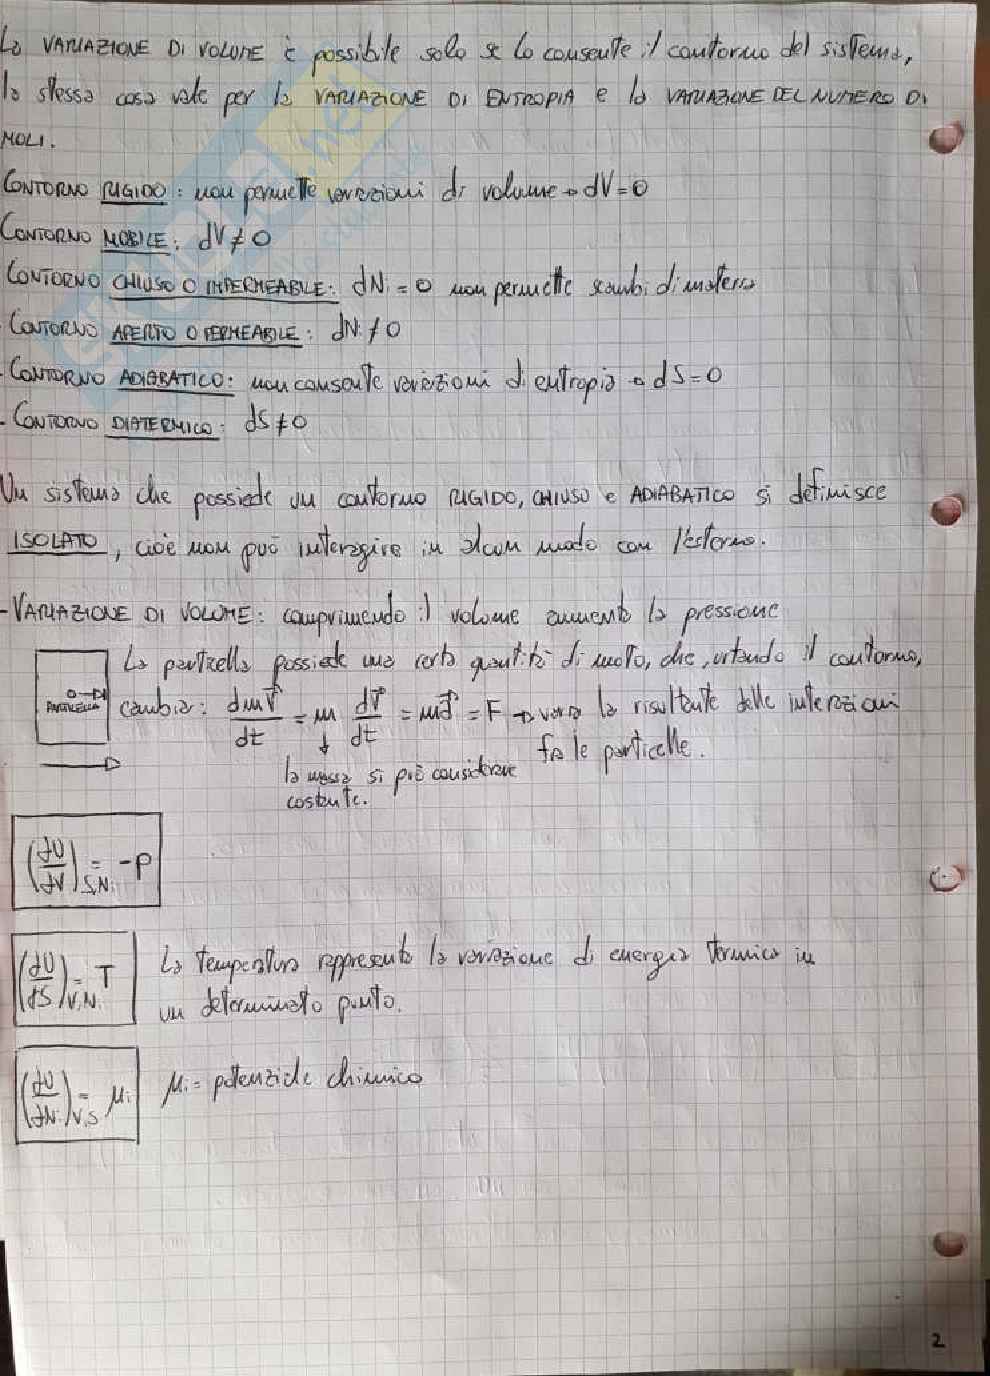 La VARIAZIONE DI VOLUME è possibile solo se lo consente il contorno del sistema,
la stessa cosa vale per la VARIAZIONE DI ENTROPIA e la VARIAZIONE DEL NUMERO DI
MOLI.
CONTORNO RIGIDO: non permette variazioni di volume → dV=0
CONTORNO MOBILE: dV≠0
CONTORNO CHIUSO O IMPERMEABILE: dNi=0 non permette scambi di materia
- CONTORNO APERTO O PERMEABILE: dNi≠0
- CONTORNO ADIABATICO: non consente variazioni di entropia → dS=0
- CONTORNO DIATERMICO: dS≠0
Un sistema che possiede un contorno RIGIDO, CHIUSO e ADIABATICO si definisce
ISOLATO, cioè non può interagire in alcun modo con l'esterno.
- VARIAZIONE DI VOLUME: comprimendo il volume aumenta la pressione
La particella possiede una certa quantità di moto, che, urtando il contorno,
PARTICELLA
cambia: dmV⃗/dt = m dV⃗/dt = ma⃗ = F → verso la risultante delle interazioni
fra le particelle.
↓
la massa si può considerare
costante.
(∂U/∂V)S,Ni = -P
(∂U/∂S)V,Ni = T La temperatura rappresenta la variazione di energia termica in
un determinato punto.
(∂U/∂Ni)V,S = μi μi = potenziale chimico
2